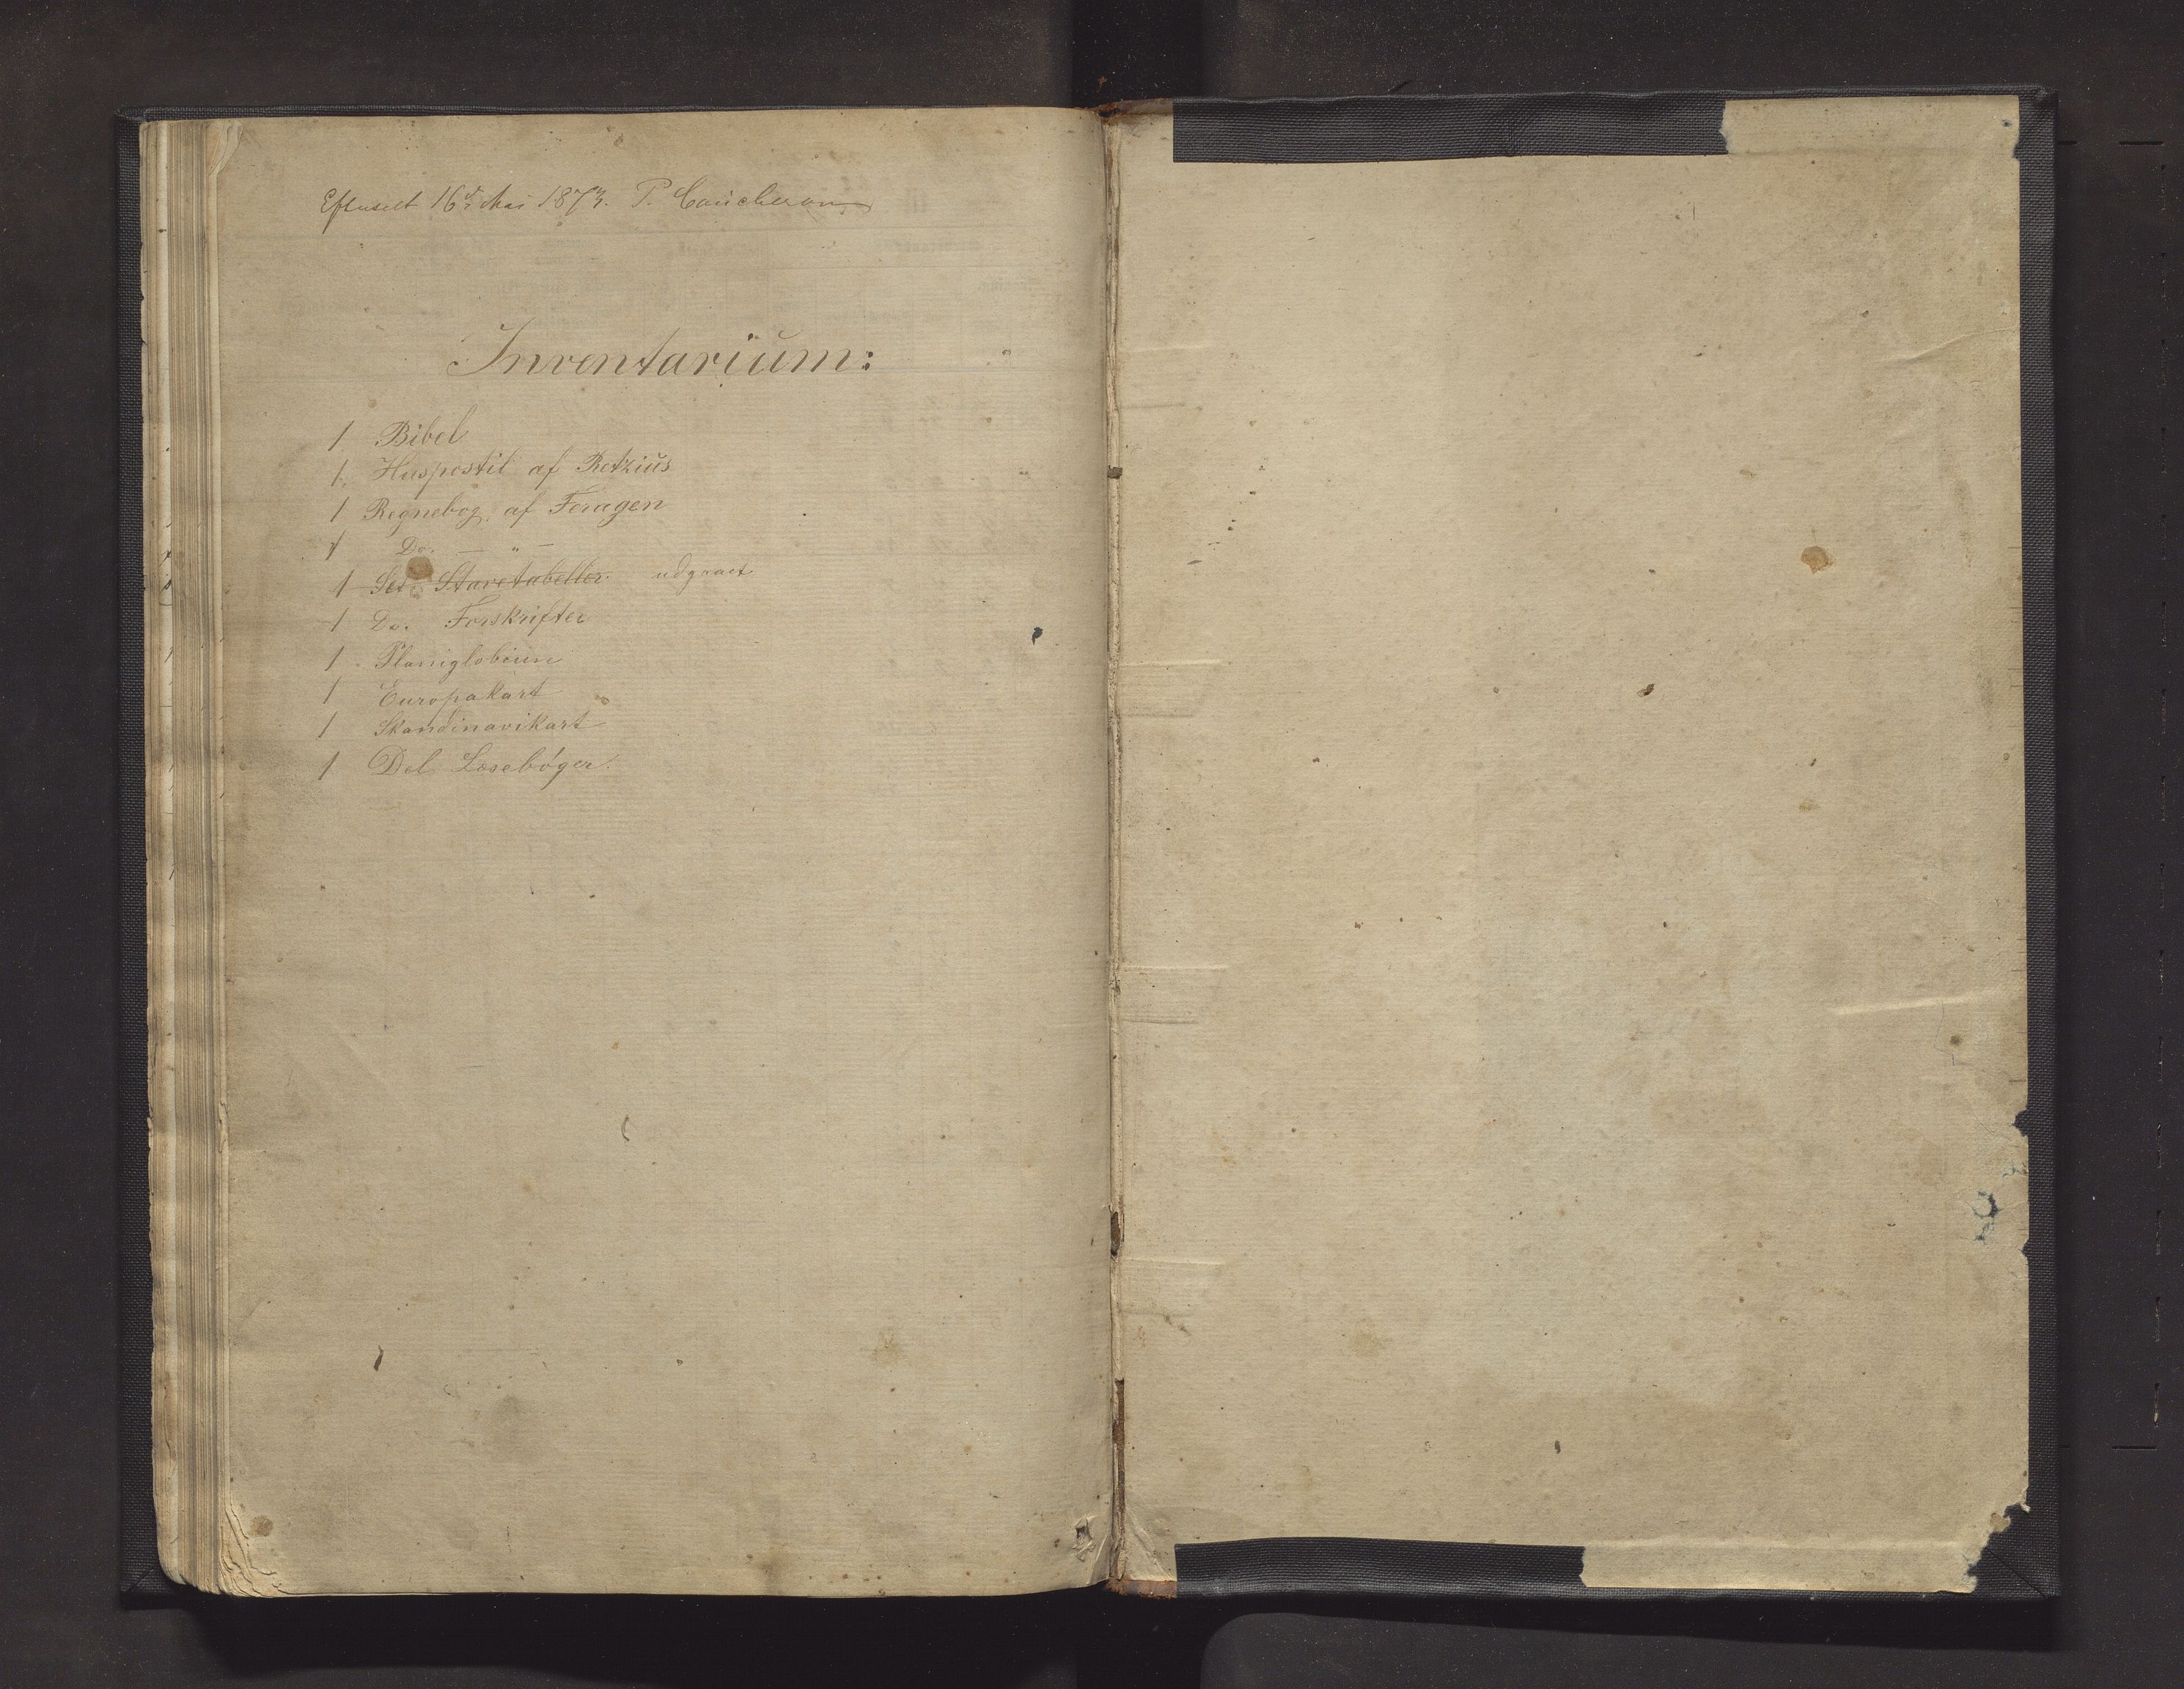 Efterseet 16de Mai 1873. P. Caucheron
Inventarium:
1 Bibel
1. Huspostil af Retzius
1 Regnebog af Feragen
1 Do. — " —
1 Set Stavetabeller udgaaet
1 Do. Forskrifter
1 Planiglobium
1 Europakart
1 Skandinavikart
1 Del Læsebøger.